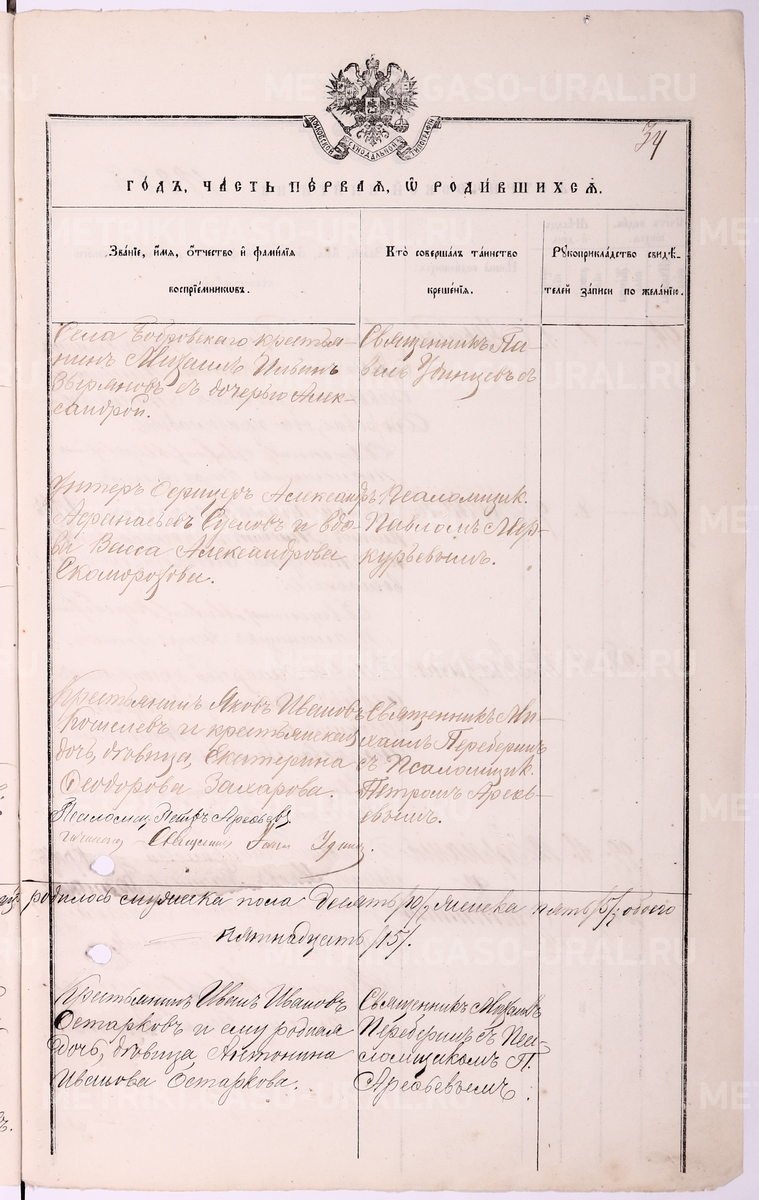 34
ГОДЪ, ЧАСТЬ ПЕРВАЯ, Ѡ РОДИВШИХСЯ.
Званіе, имя, отчество и фамилія
воспріемниковъ.
Кто совершалъ таинство
крещенія.
Рукоприкладство свидѣ-
телей записи по желанію.
Села Бобровскаго крестья-
нинъ Михаилъ Ильинъ
Зыряновъ съ дочерью Алек-
сандрой.
Священникъ Па-
велъ съ
Унтеръ Офицеръ Александръ
Афанасьевъ Сусловъ и вдо-
ва Васса Александрова
Скоморохова.
Псаломщик.
Павломъ Мер-
курьевымъ.
Крестьянинъ Яковъ Ивановъ
и крестьянская
дочь, дѣвица, Екатерина
Ѳеодорова Захарова.
Священникъ Ми-
хаилъ Переберинъ
съ Псаломщик.
Петромъ Арефь-
евымъ.
Псаломщ. Петръ Арефьевъ
Священникъ
родилось мужеска пола Десять /10/, женска пять /5/; обоего
пятнадцать /15/.
Крестьянинъ Иванъ Ивановъ
Остарковъ и ему родная
дочь, дѣвица Антонина
Иванова Остаркова.
Священникъ Михаилъ
Переберинъ съ Пса-
ломщикомъ П.
Арефьевымъ.
METRIKI.GASO-URAL.RU